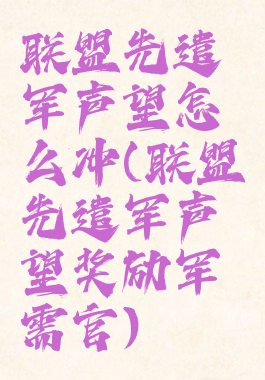 联盟先遣
军声望怎
么冲(联盟
先遣军声
望奖励军
需官)